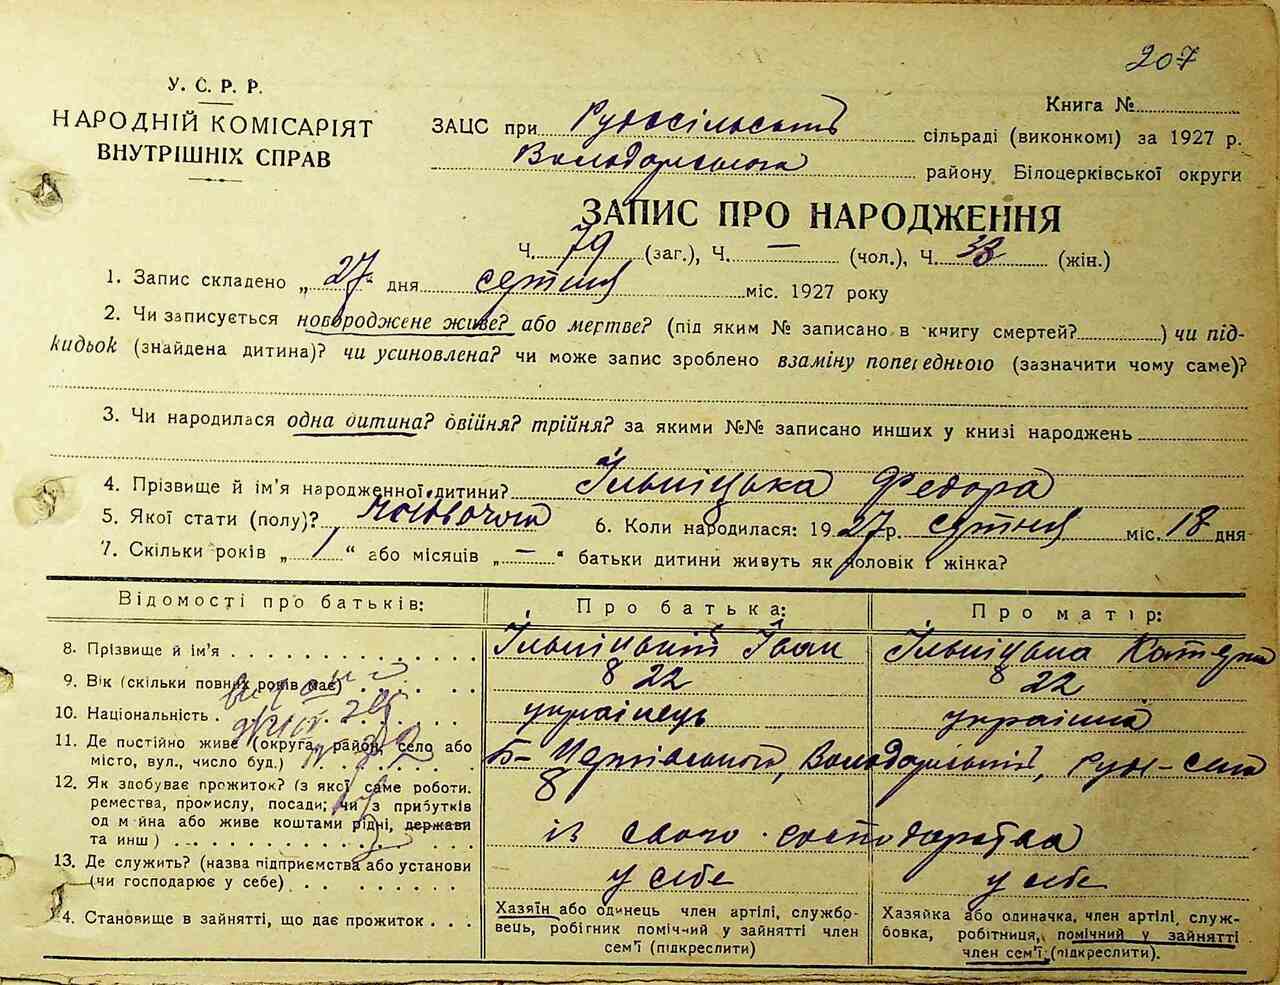 207
У. С. Р. Р.
НАРОДНІЙ КОМІСАРІЯТ
ВНУТРІШНІХ СПРАВ
Книга №
ЗАЦС при Рудосільській сільраді (виконкомі) за 1927 р.
Володарського району Білоцерківської округи
ЗАПИС ПРО НАРОДЖЕННЯ
Ч. 79 (заг.), Ч. — (чол.), Ч. 38 (жін.)
1. Запис складено „ 27 дня серпня міс. 1927 року
2. Чи записується новороджене живе? або мертве? (під яким № записано в книгу смертей? ) чи під-
кидьок (знайдена дитина)? чи усиновлена? чи може запис зроблено взаміну попереднього (зазначити чому саме)?
3. Чи народилася одна дитина? двійня? трійня? за якими №№ записано инших у книзі народжень
4. Прізвище й ім'я народженної дитини? Ільніцька Федора
5. Якої стати (полу)? жіночого 6. Коли народилася: 1927 р. серпня міс. 18 дня
7. Скільки років „ 1 “ або місяців „ — “ батьки дитини живуть як чоловік і жінка?
Відомості про батьків: Про батька: Про матір:
8. Прізвище й ім'я Ільніцький Іван Ільніцька Катерина
9. Вік (скільки повних років має) 22 22
10. Національність українець українка
11. Де постійно живе (округа, район, село або
місто, вул., число буд.) Б-Церківського, Володарський, Руд-село
12. Як здобуває прожиток? (з якої саме роботи.
ремества, промислу, посади; чи з прибутків
од майна або живе коштами рідні, держави
та инш) із свого господарства
13. Де служить? (назва підприємства або установи
(чи господарює у себе) у себе у себе
14. Становище в зайнятті, що дає прожиток
Хазяїн або одинець член артілі, службо-
вець, робігник помічний у зайнятті член
сем'ї (підкреслити)
Хазяйка або одиначка, член артілі, служ-
бовка, робітниця, помічний у зайнятті
член сем'ї (підкреслити).